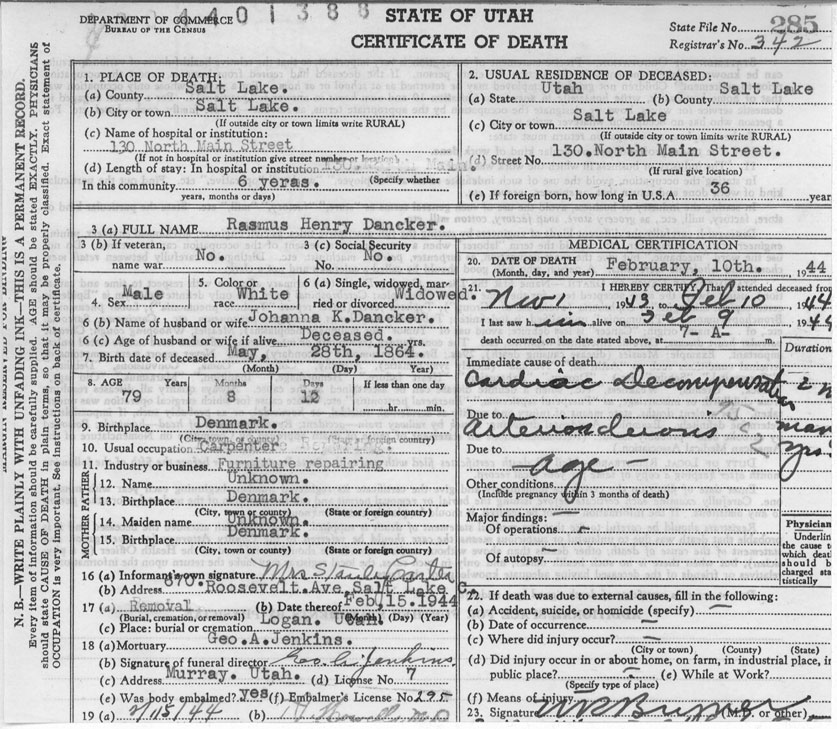 4401388
DEPARTMENT OF COMMERCE
BUREAU OF THE CENSUS
STATE OF UTAH
CERTIFICATE OF DEATH
State File No. 285
Registrar's No. 342
N. B.—WRITE PLAINLY WITH UNFADING INK—THIS IS A PERMANENT RECORD.
Every item of information should be carefully supplied. AGE should be stated EXACTLY. PHYSICIANS
should state CAUSE OF DEATH in plain terms, so that it may be properly classified. Exact statement of
OCCUPATION is very important. See instructions on back of certificate.
1. PLACE OF DEATH:
(a) County Salt Lake.
(b) City or town Salt Lake.
(If outside city or town limits write RURAL)
(c) Name of hospital or institution:
130 North Main Street
(If not in hospital or institution give street number or location)
(d) Length of stay: In hospital or institution
In this community 6 yeras. (Specify whether
years, months or days)
2. USUAL RESIDENCE OF DECEASED:
(a) State Utah (b) County Salt Lake
(c) City or town Salt Lake
(If outside city or town limits write RURAL)
(d) Street No. 130.North Main Street.
(If rural give location)
(e) If foreign born, how long in U.S.A. 36 year
3 (a) FULL NAME Rasmus Henry Dancker.
3 (b) If veteran, name war No.
3 (c) Social Security No. No.
4. Sex Male
5. Color or race White
6 (a) Single, widowed, married or divorced Widowed.
6 (b) Name of husband or wife Johanna K.Dancker.
6 (c) Age of husband or wife if alive Deceased. yrs.
7. Birth date of deceased May, 28th, 1864.
(Month) (Day) (Year)
8. AGE Years Months Days If less than one day
79 8 12 hr. min.
9. Birthplace Denmark.
(City, town, or county) (State or foreign country)
10. Usual occupation Carpenter
11. Industry or business Furniture repairing
FATHER
12. Name Unknown.
13. Birthplace Denmark.
(City, town or county) (State or foreign country)
MOTHER
14. Maiden name Unknown.
15. Birthplace Denmark.
(City, town or county) (State or foreign country)
16 (a) Informant's own signature Mrs Stanley Carter
(b) Address 870. Roosevelt.Ave,Salt Lake C
17 (a) Removal (b) Date thereof Feb,15.1944
(Burial, cremation, or removal) (Month) (Day) (Year)
(c) Place: burial or cremation Logan. Utah.
18 (a) Mortuary Geo.A.Jenkins.
(b) Signature of funeral director Geo. A. Jenkins
(c) Address Murray. Utah. (d) License No 7
(e) Was body embalmed? yes (f) Embalmer's License No 295
19 (a) 2/15/44 (b)
MEDICAL CERTIFICATION
20. DATE OF DEATH February, 10th. 1944
(Month, day, and year)
21. I HEREBY CERTIFY, That I attended deceased from
Nov 1 1943, to Feb 10 1944
I last saw him alive on Feb 9 1944
death occurred on the date stated above, at 7- A- m.
Duration
Immediate cause of death
Cardiac Decompensation
Due to
Arteriosclerosis many yrs.
Due to
age
Other conditions
(Include pregnancy within 3 months of death)
Major findings:
Of operations
Of autopsy
Physician
Underlin
the cause t
which deat
should b
charged sta
tistically
22. If death was due to external causes, fill in the following:
(a) Accident, suicide, or homicide (specify)
(b) Date of occurrence
(c) Where did injury occur?
(City or town) (County) (State)
(d) Did injury occur in or about home, on farm, in industrial place, i
public place? (e) While at Work?
(Specify type of place)
(f) Means of injury
23. Signature (M.D. or other)